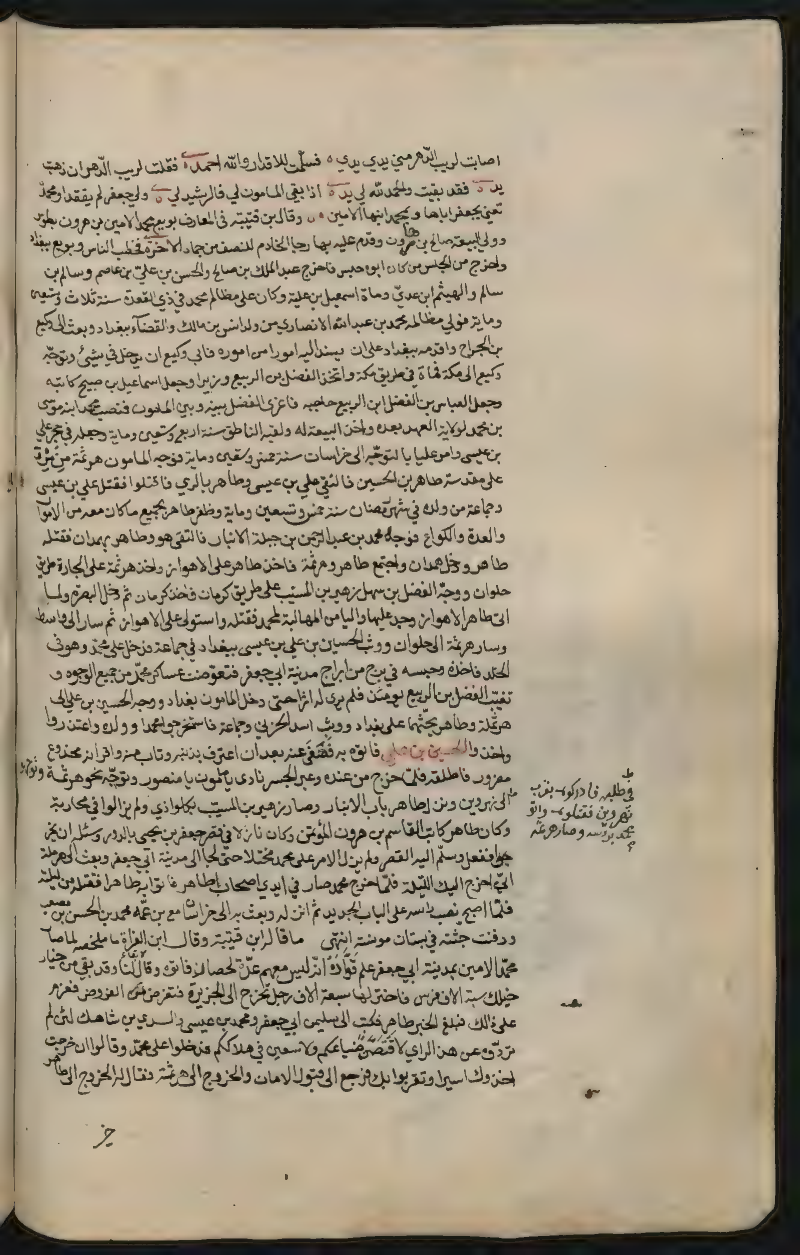 اصابت لريب الدهر مني يدي يدي ه فسلمت للاقدار والله احمد ه فقلت لريب الدهر ان ذهبت
يد ه فقد بقيت والحمد لله لي يد ه اذا بقي المامون لي فالرشيد لي ه ولي جعفر لم يفقدا ومحمد
تعني بجعفر اباها وبمحمد ابنها الامين ه وقال بن قتيبة في المعارف بويع محمد الامين بن هرون بطوس
وولي البيعة صالح بن هرون وقدم عليه بها رجا الخادم للنصف من جماد الاخرة فخطب الناس وبويع ببغداد
واخرج من الحبس من كان ابوه حبس فاخرج عبد الملك بن صالح والحسن بن علي بن عاصم وسالم بن
سالم والهيثم ابن عدي وماة اسمعيل بن علية وكان على مظالم محمد في ذي القعدة سنة ثلاث وتسعين
وماية فولي مظالمه محمد بن عبد الله الانصاري من ولد انس بن مالك والقضاء ببغداد وبعث الى وكيع
بن الجراح واقدمه ببغداد على ان يسند اليه امورا من اموره فابى وكيع ان يدخل في شيئ وتوجه
وكيع الى مكة فماة في طريق مكة واتخذ الفضل بن الربيع وزيرا وجعل اسماعيل بن صبيح كاتبه
وجعل العباس بن الفضل ابن الربيع حاجبه فاغرى الفضل بينه وبين المامون فنصب محمد ابنه موسى
بن محمد لولاية العهد بعده واخذ البيعة له ولقبه الناطق سنة اربع وتسعين وماية وجعله في حجر علي
بن عيسى وامر عليا بالتوجه الى خراسان سنة خمس وتسعين وماية فوجه المامون هرثمة من مرو
على مقدمته طاهر بن الحسين فالتقى علي بن عيسى وطاهر بالري فاقتتلوا فقتل علي بن عيسى
وجماعة من ولده في شهر رمضان سنة خمس وتسعين وماية وظفر طاهر بجميع ما كان معه من الاموال
والعدة والكراع فوجه محمد بن عبد الرحمن بن جبلة الانبار فالتقى هو وطاهر بهمدان فقتله
طاهر ودخل همدان واجتمع طاهر وهرثمة فاخذ طاهر على الاهواز واخذ هرثمة على الجادة طريق
حلوان ووجه الفضل بن سهل زهير بن المسيب على طريق كرمان فاخذ كرمان ثم دخل البصرة ولما
اتى طاهر الاهواز وجد عليها واليا من المهالبة لمحمد فقتله واستولى على الاهواز ثم سار الى واسط
وسار هرثمة الى حلوان ووثب الحسين بن علي بن عيسى ببغداد في جماعة فدخل على محمد وهو في
الخلد فاخذه وحبسه في برج من ابراج مدينة ابي جعفر فتعوضت عساكر محمد من جميع الوجوه و
تغيب الفضل بن الربيع يومئذ فلم يرى له اثرا حتى دخل المامون بغداد ووجه الحسين بن علي الى
هرثمة وطاهر يحثهما على بغداد ووثب اسد الحربي وجماعة فاستخرجوا محمدا وولده واعتذروا
واخذ والحسين بن علي فاتوه به فعفى عنه بعد ان اعترف بذنبه وتاب منه واقر انه مخدوع
مغرور فاطلقه فلما خرج من عنده وعبر الجسر نادى يا مامون يا منصور وتوجه نحو هرثمة
الى نهروين ونزل طاهر باب الانبار وصار زهير بن المسيب بكلواذي ولم يزالوا في محاربة
وكان طاهر كاتب القاسم بن هرون المؤتمن وكان نازلا في قصر جعفر بن يحيى بالدور وسئله ان يخر
جوا ففعل وسلم اليه القصر ولم يزل الامر على محمد مختلا حتى لجا الى مدينة ابي جعفر وبعث الى هرثمة
اني اخرج اليك الليلة فلما خرج محمد صار في ايدي اصحاب طاهر فاتوا به طاهرا فقتله من ليلته
فلما اصبح نصب راسه على الباب الجديد ثم انزله وبعث به الى خراسان مع بن عمه محمد بن الحسن بن مصعب
ودفنت جثته في بستان مونسة انتهى ما قاله ابن قتيبة وقال ابن الفراة ما ملخصه لما صار
محمد الامين بمدينة ابي جعفر علم قواده انه ليس معهم عدة لحصار فاتوه وقالوا له وقد بقي من خيار
خيلك ستة الاف فرس فاختر لها سبعة الاف رجل تخرج الى الجزيرة فتفرض الفروض فعزم
على ذلك فبلغ الخبر طاهر فكتب الى سليمن ابي جعفر ومحمد بن عيسى والسدي بن شاهك لئن لم
تردوه عن هذا الراي لاقبضن ضياعكم ولاسعين في هلاككم فدخلوا على محمد وقالوا ان خرجت
اخذوك اسيرا وتقربوا بك فرجع الى قبول الامان والخروج الى هرثمة فقال له الخروج الى طاهر
وطلبه فادركوه بقرب
نهروين فقتلوه واتو
محمد براسه وصار هرثمة
خير